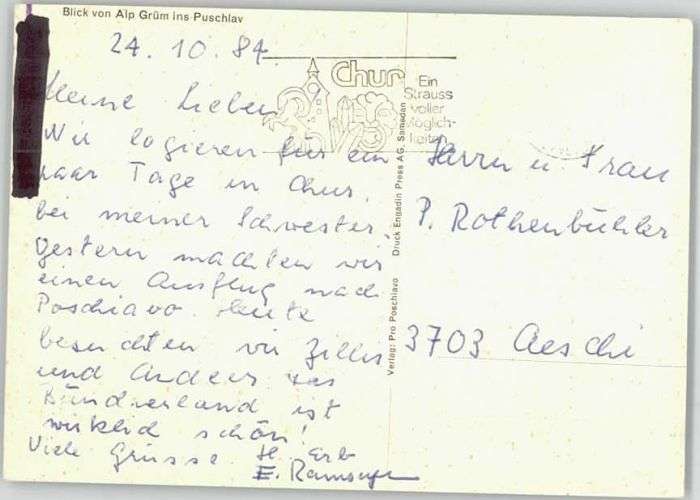 Blick von Alp Grüm ins Puschlav
24. 10. 84
Meine Lieben
Wir logieren für ein
paar Tage in Chur,
bei meiner Schwester,
gestern machten wir
einen Ausflug nach
Poschiavo. Heute
besuchten wir Zillis
und Andeer. Das
Bündnerland ist
wirklich schön!
Viele Grüsse H. Erb
E.
Chur
Ein
Strauss
voller
Möglich-
keiten
Verlag: Pro Poschiavo Druck Engadin Press AG, Samedan
Herrn u Frau
P. Rothenbühler
3703 Aeschi